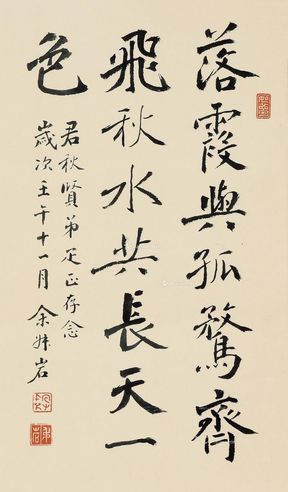 落霞與孤鶩齊
飛秋水共長天一
色
君秋賢弟足正存念
歲次壬午十一月 余叔岩